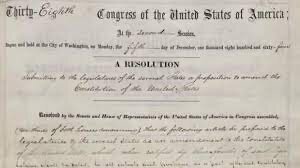 Thirty-Eighth Congress of the United States of America;
At the Second Session,
Begun and held at the City of Washington, on Monday, the fifth day of December, one thousand eight hundred and sixty-four
A RESOLUTION
Submitting to the legislatures of the several States a proposition to amend the
Constitution of the United States
Resolved by the Senate and House of Representatives of the United States of America in Congress assembled,
(two thirds of both houses concurring) that the following article be proposed to the
legislatures of the several States as an amendment to the Constitution of